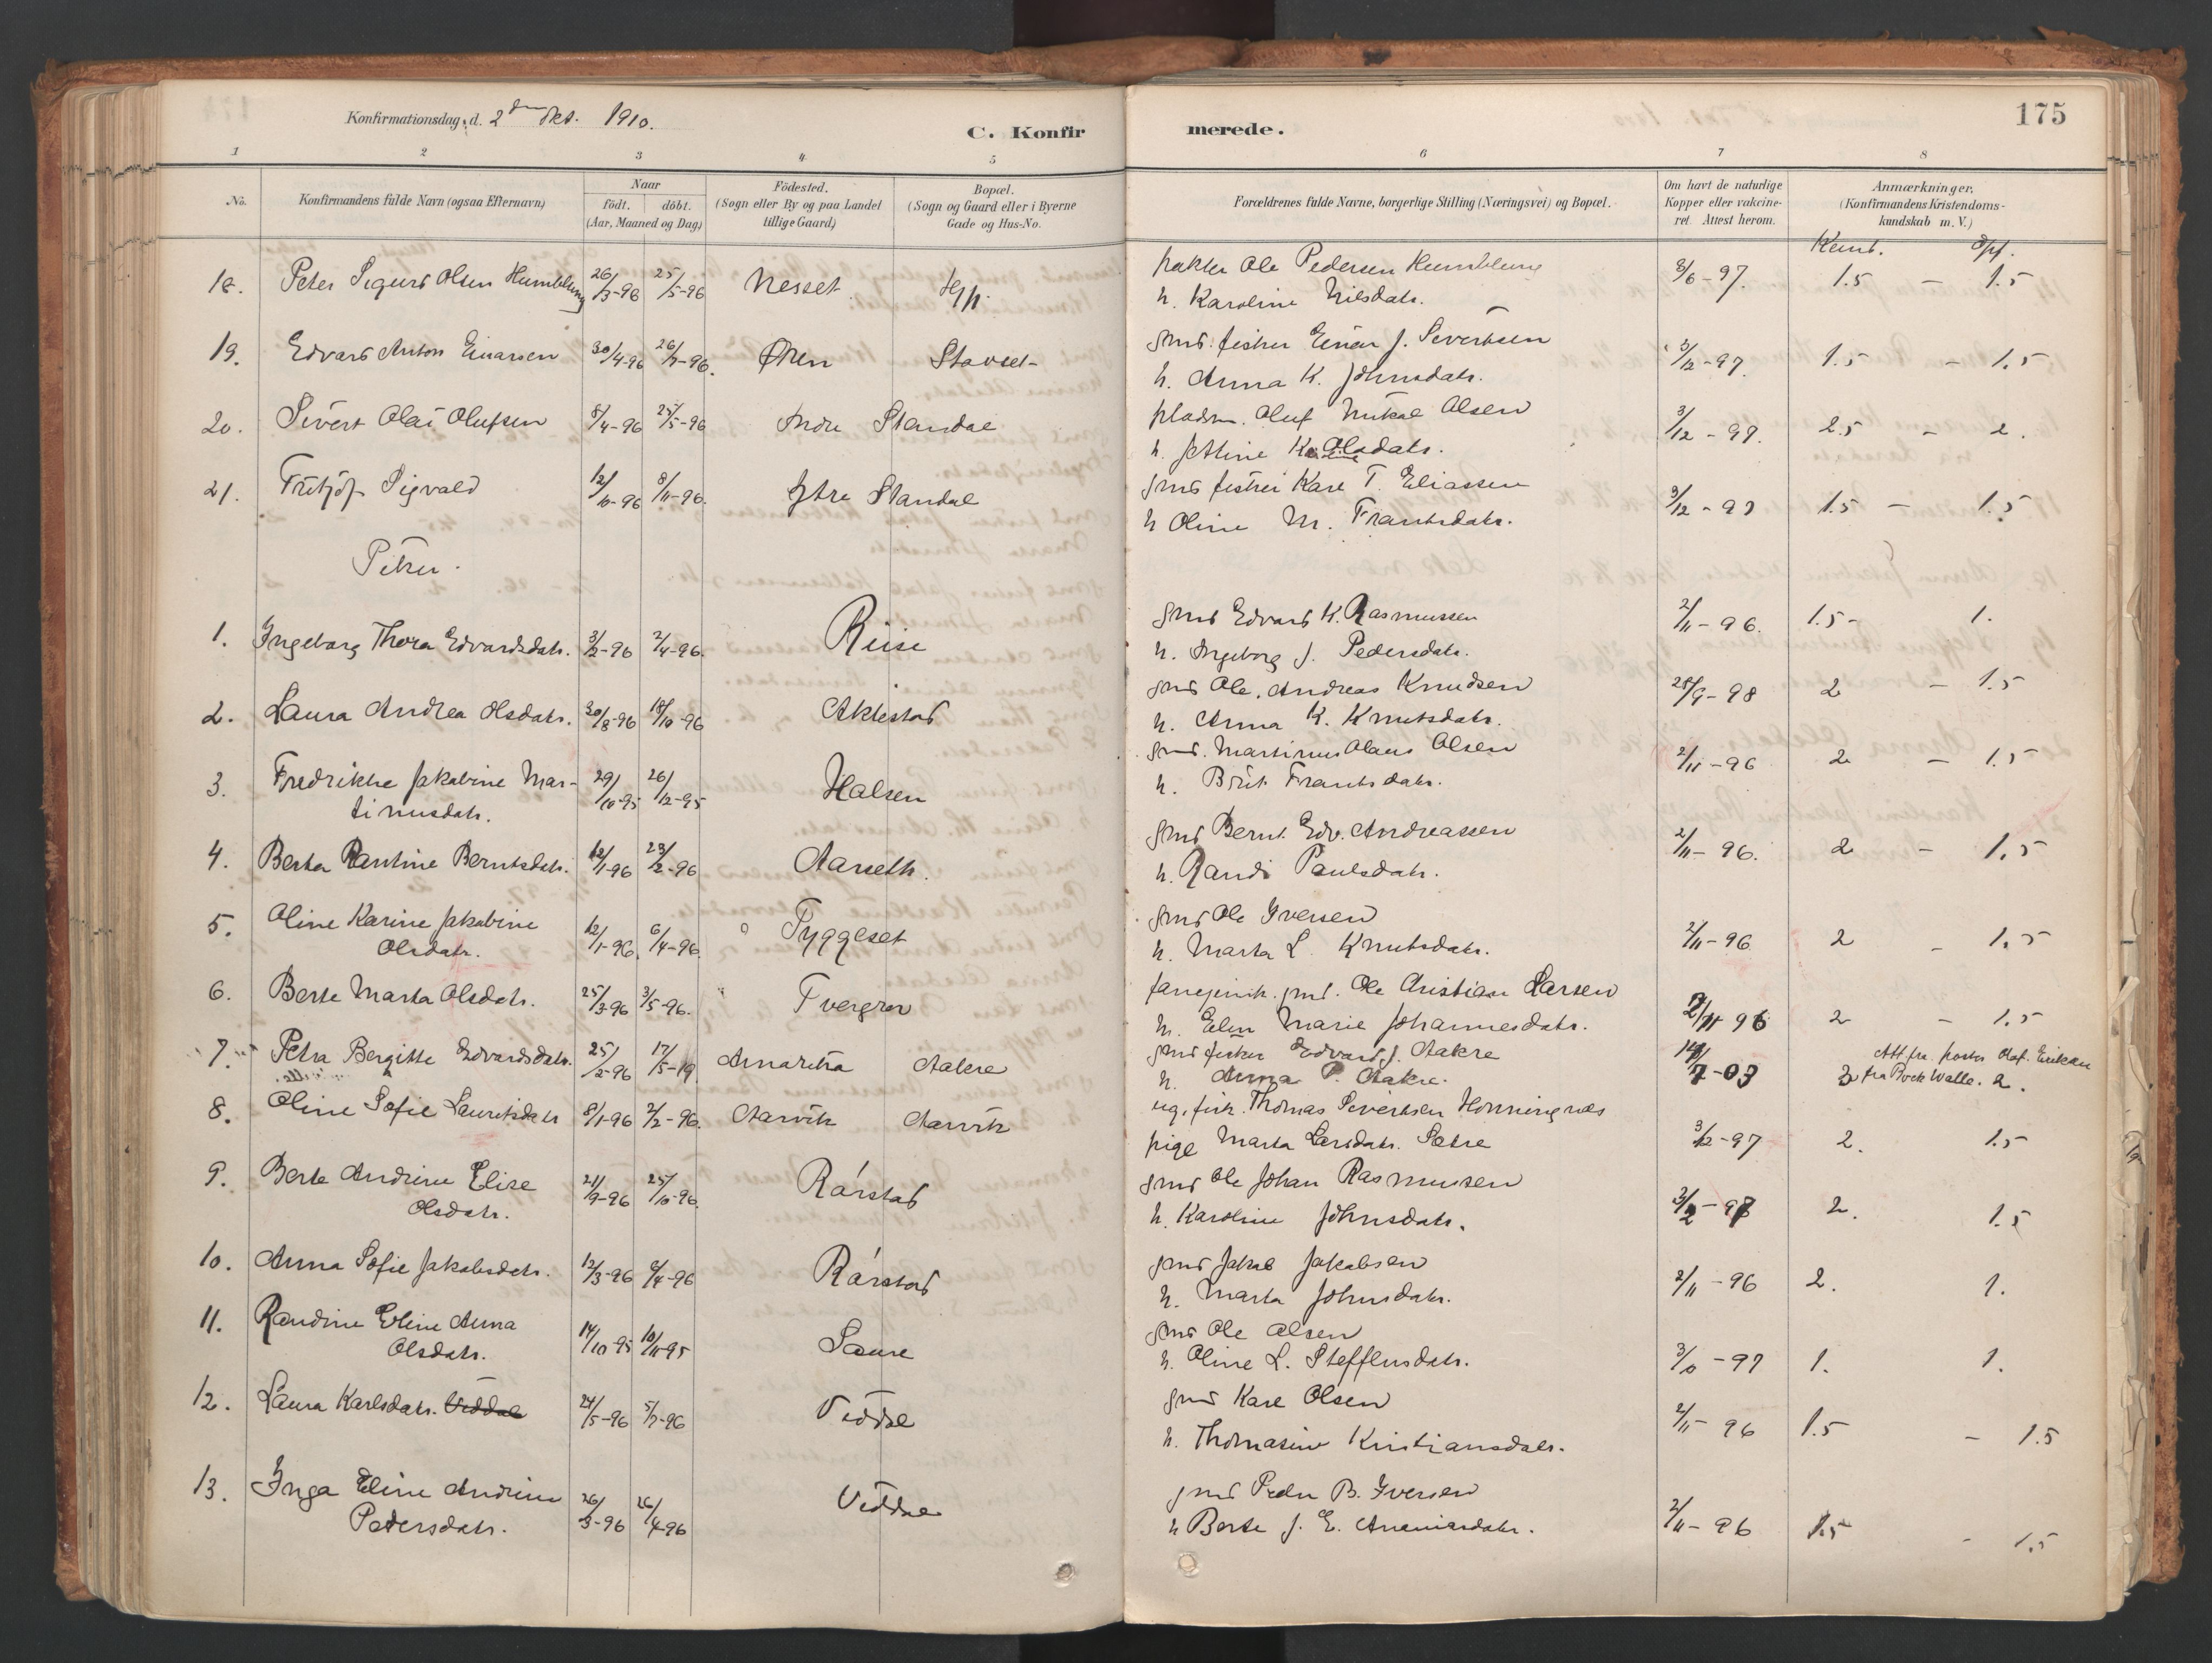 175
Konfirmationsdag d. 2den Okt. 1910.
C. Konfirmerede.
1 2 3 4 5 6 7 8
No.
Konfirmandens fulde Navn (ogsaa Efternavn)
Naar
födt. döbt.
(Aar, Maaned og Dag)
Födested.
(Sogn eller By og paa Landet
tillige Gaard)
Bopæl.
(Sogn og Gaard eller i Byerne
Gade og Hus-No.
Forældrenes fulde Navne, borgerlige Stilling (Næringsvei) og Bopæl.
Om havt de naturlige
Kopper eller vakcine-
ret. Attest herom.
Anmærkninger.
(Konfirmandens Kristendoms-
kundskab m. V.)
18. Peter Sigurd Olsen Humblung 26/3-96 25/5-96 Nesset
Ole Pedersen Humblung
h. Karoline Nilsdatr. 8/6-97. 1.5 – 1.5
19. Edvard Anton Einarsen 30/4-96 26/7-96. Ören Stavset
gmd. fisker Einar J. Severtsen
h. Anna K. Johnsdatr. 3/12-97. 1.5 – 1.5
20. Sivert Olai Olufsen 8/4-96 25/5-96 Indre Standal
pladsm. Oluf Mikal Olsen
h. Jettine Olsdatr. 3/12-97. 2.5 – 2.
21. Fritjof Sigvald 12/10-96 8/11-96. Ytre Standal
gmd fisker Karl T. Eliassen
h Oline M. Frantsdatr. 3/12-97 1.5 – 1.5
Piker.
1. Ingeborg Thora Edvardsdatr. 3/2-96 2/4-96. Riise
gmd Edvard K. Rasmussen
h. Ingeborg J. Pedersdatr. 2/11-96. 1.5 - 1.
2. Laura Andrea Olsdatr. 30/8-96 18/10-96 Aklestad
gmd Ole Andreas Knudsen
h. Anna K. Knutsdatr. 28/9-98 2 – 1.5
3. Fredrikke Jakobine Mar-
tinusdatr. 29/10-95 26/12-95 Halsen
gmd. Martinus Olaus Olsen
h. Brit Frantsdatr. 2/11-96 2 – 1.5
4. Berta Rantine Berntsdatr. 12/1-96 23/2-96 Aarseth.
gmd Bernt Edv. Andreassen
h. Randi Paulsdatr. 2/11-96. 2 – 1.5
5. Oline Karine Jakobine
Olsdatr. 12/1-96. 6/4-96. Tyggeset
gmd Ole Iversen
h. Marta L. Knutsdatr. 2/11-96 2 – 1.5
6. Berte Marta Olsdatr. 25/3-96 3/5-96. Tvergrov
gmd. Ole Kristian Larsen
h. Elen Marie Johannesdatr. 2/11 96 2 – 1.5
7. Petra Bergitte Edvardsdatr. 25/2-96 17/5-19 Amarika Aakre
gmd fisker Edvard J. Aakre
h. Anna P. Aakre. 7-03
Att. fra pastor Olaf Eriksen
fra Brek Walle. 2.
8. Oline Sofie Lauritsdatr 8/1-96 2/2-96. Aarvik Aarvik
ug. fisk. Thomas Sivertsen Honningnes
pige Marta Larsdatr. Sætre 3/12-97 2. 1.5
9. Berte Andrine Elise
Olsdatr. 21/9-96 25/10-96. Rörstad
gmd Ole Johan Rasmussen
h. Karoline Johnsdatr. 3/2-97 2. 1.5
10. Anna Sofie Jakobsdatr. 12/3-96 6/4-96 Rörstad
gmd Jakob Jakobsen
h. Marta Johnsdatr. 2/11-96 2. 1.
11. Randine Eline Anna
Olsdatr. 14/10-95 10/11-95 Saure
gmd Ole Olsen
h. Oline L. Steffensdatr. -97 1. 1.
12. Laura Karlsdatr. Viddal 24/5-96 5/7-96 Viddal
gmd Karl Olsen
h. Thomasine Kristiansdatr. 2/11-96 1.5 – 1.5
13. Inga Eline Andrine
Pedersdatr. 26/3-96 26/4-96 Viddal
gmd Peder B. Iversen
h Berte J. E. Ananiasdatr. 2/11-96 1.5 - 1.5
Kunds. Opf.